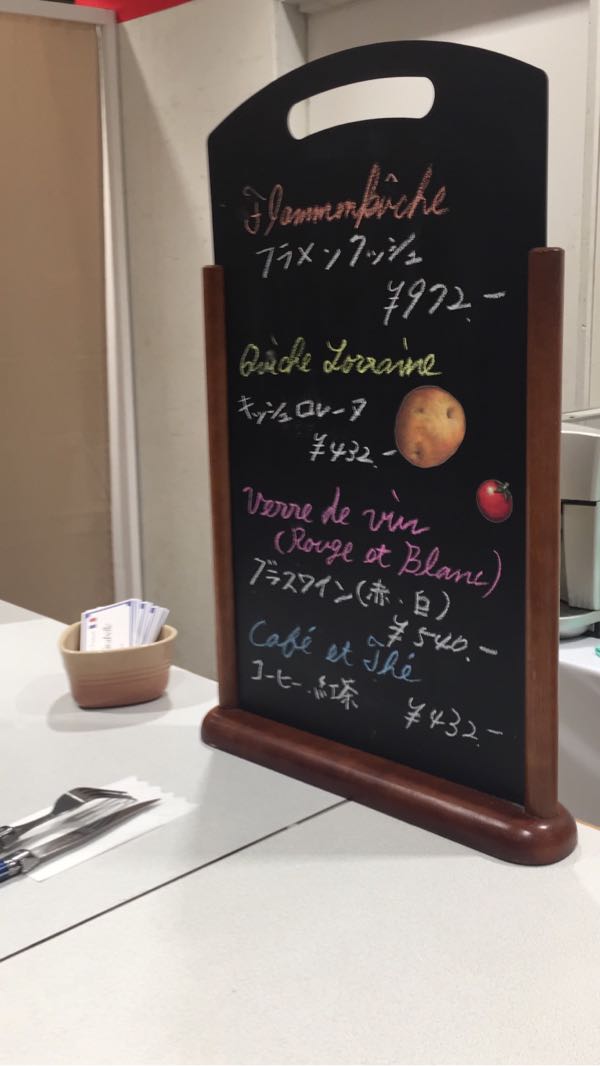 Flammmkûche
フラメンクッシュ
¥972.-
Quiche Lorraine
キッシュロレーヌ
¥432.-
Verre de vin
(Rouge et Blanc)
グラスワイン(赤・白)
¥540.-
Café et Thé
コーヒー・紅茶
¥432.-